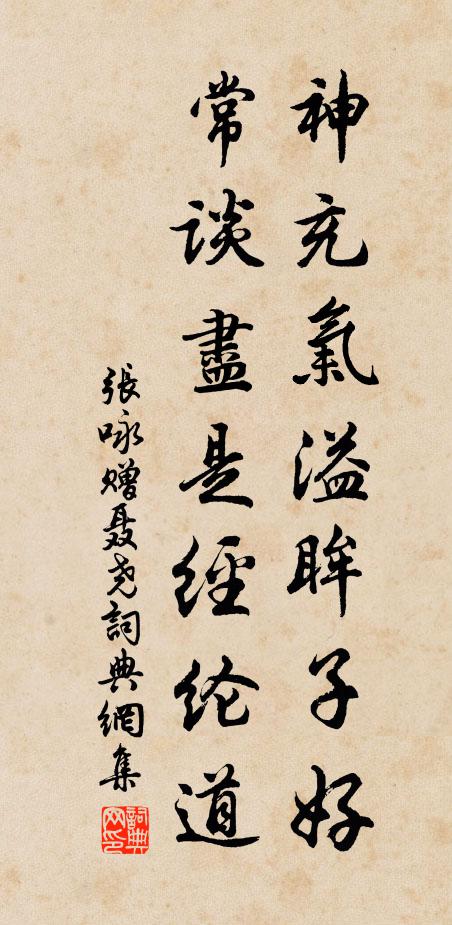 神充氣溢眸子好
常談盡是經纶道
張咏贈聂尧詞典網集
詞典网印